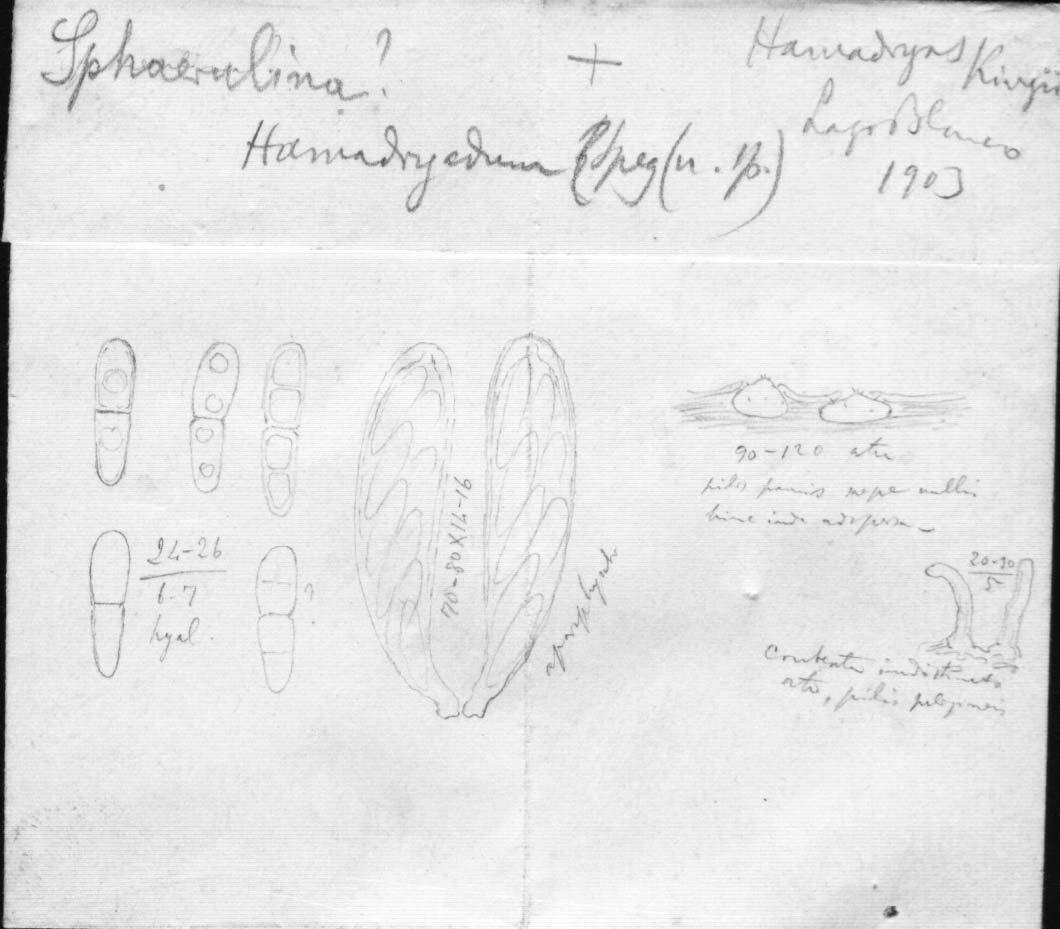 Sphaerulina?
+
Hamadryas Kingii
Lago Blanco
1903
Hamadryadum Speg (n. sp.)
24-26
6-7
hyal.
?
70-80X14-16
aparaphysate
90-120 atra
pilis paucis saepe nullis
hinc inde adspersa
20-30
5
Contextu indistincto
atro, pilis